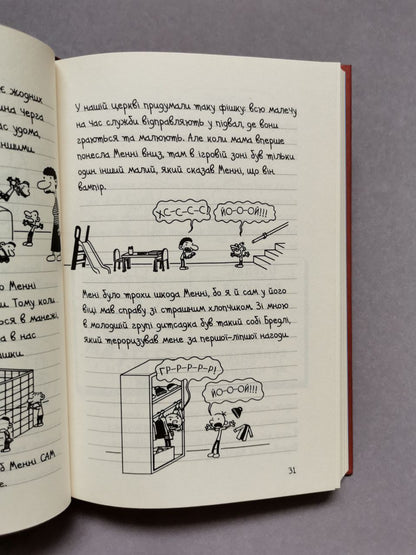 є жодних
ина черга
ас удома,
ншими.
ю Менні
и. Тому, коли
ося в манежі,
а в нас
шки.
б Менні САМ
е.
У нашій церкві придумали таку фішку: всю малечу
на час служби відправляють у підвал, де вони
граються та малюють. Але коли мама вперше
понесла Менні вниз, там в ігровій зоні був тільки
один інший малий, який сказав Менні, що він
вампір.
ХС-С-С-С!
ЙО-О-ОЙ!!!
Мені було трохи шкода Менні, бо я й сам у його
віці мав справу зі страшним хлопчиком. Зі мною
в молодшій групі дитсадка був такий собі Бредлі,
який тероризував мене за першої-ліпшої нагоди.
ГР-Р-Р-Р-Р!
ЙО-О-ОЙ!!!
31